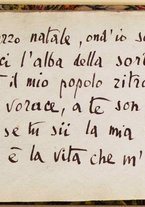 ozzo natale, ond'io s
ci l'alba della sort
t il mio popolo ritro
vorace, a te son
se tu sii la mia
è la vita che m'